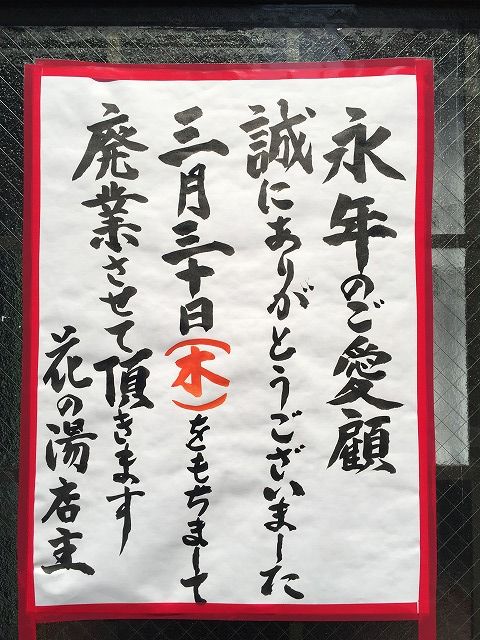 永年のご愛顧
誠にありがとうございました
三月三十日(木)をもちまして
廃業させて頂きます
花の湯店主